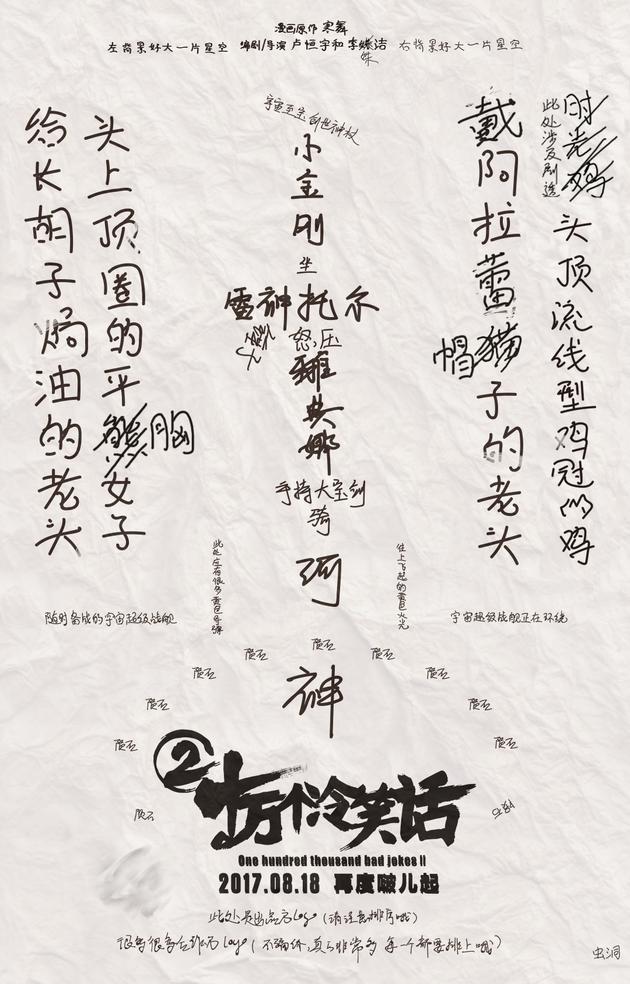 漫画原作 寒舞
左背景好大一片星空 编剧/导演 卢恒宇和李姝洁 右背景好大一片星空
宇宙至宝创世神权
小金刚
坐
雷神托尔
怒压
雅典娜
手持大宝剑
骑
河
神
头上顶圈的平胸女子
给长胡子焗油的老头
戴阿拉蕾猫帽子的老头
时光鸡
此处涉及剧透
头顶流线型鸡冠的鸡
此处应有很多黄色导弹
往上飞起的黄色火光
随时备战的宇宙超级战舰
宇宙超级战舰正在环绕
陨石
陨石
陨石
陨石
陨石
陨石
陨石
陨石
陨石
陨石
2
十万个冷笑话
One hundred thousand bad jokes II
2017.08.18 再度啵儿起
此处是出品方logo(请注意排序哦)
很多很多合作方logo(不确体,真的非常多 每一个都要排上哦)
虫洞